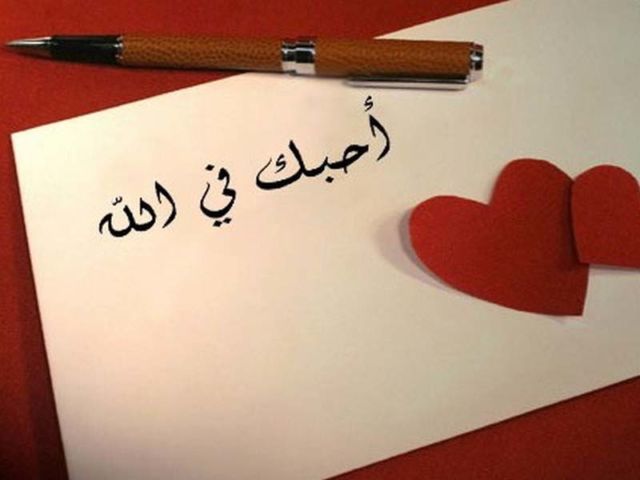 أحبك في الله